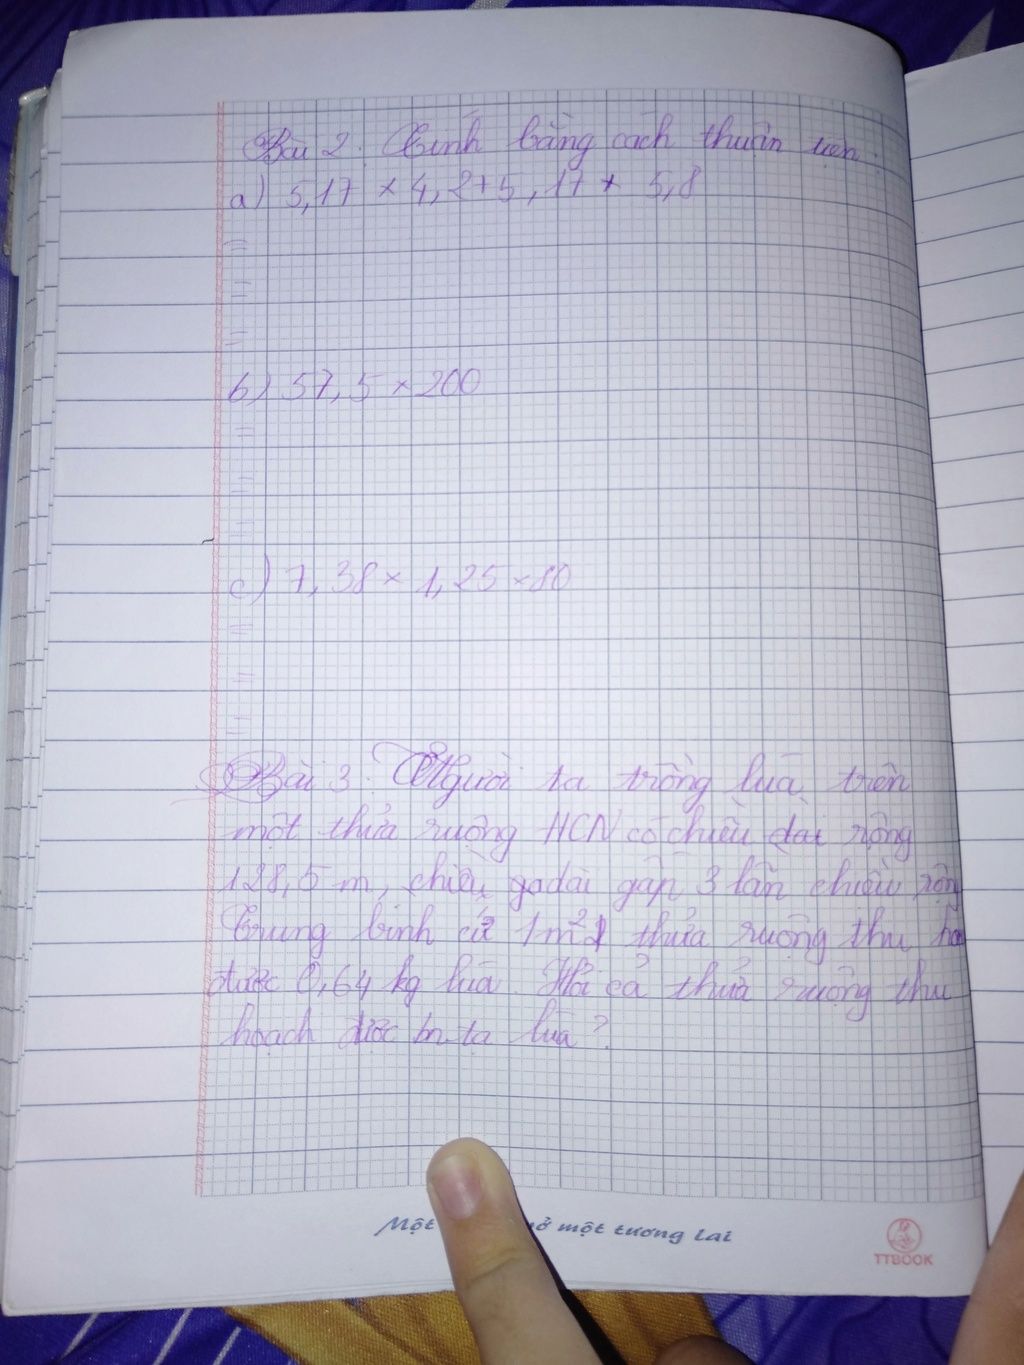 Bài 2. Tính bằng cách thuận tiện.
a) 5,17 × 4,2 + 5,17 × 5,8
=
=
=
b) 57,5 × 200
=
=
=
c) 7,38 × 1,25 × 80
=
=
=
Bài 3. Người ta trồng lúa trên
một thửa ruộng HCN có chiều rộng
128,5 m, chiều dài gấp 3 lần chiều rộng
Trung bình cứ 1m² thửa ruộng thu ho
được 0,64 kg lúa. Hỏi cả thửa ruộng thu
hoạch được bn tạ lúa?
Một mở một tương lai
TTBOOK